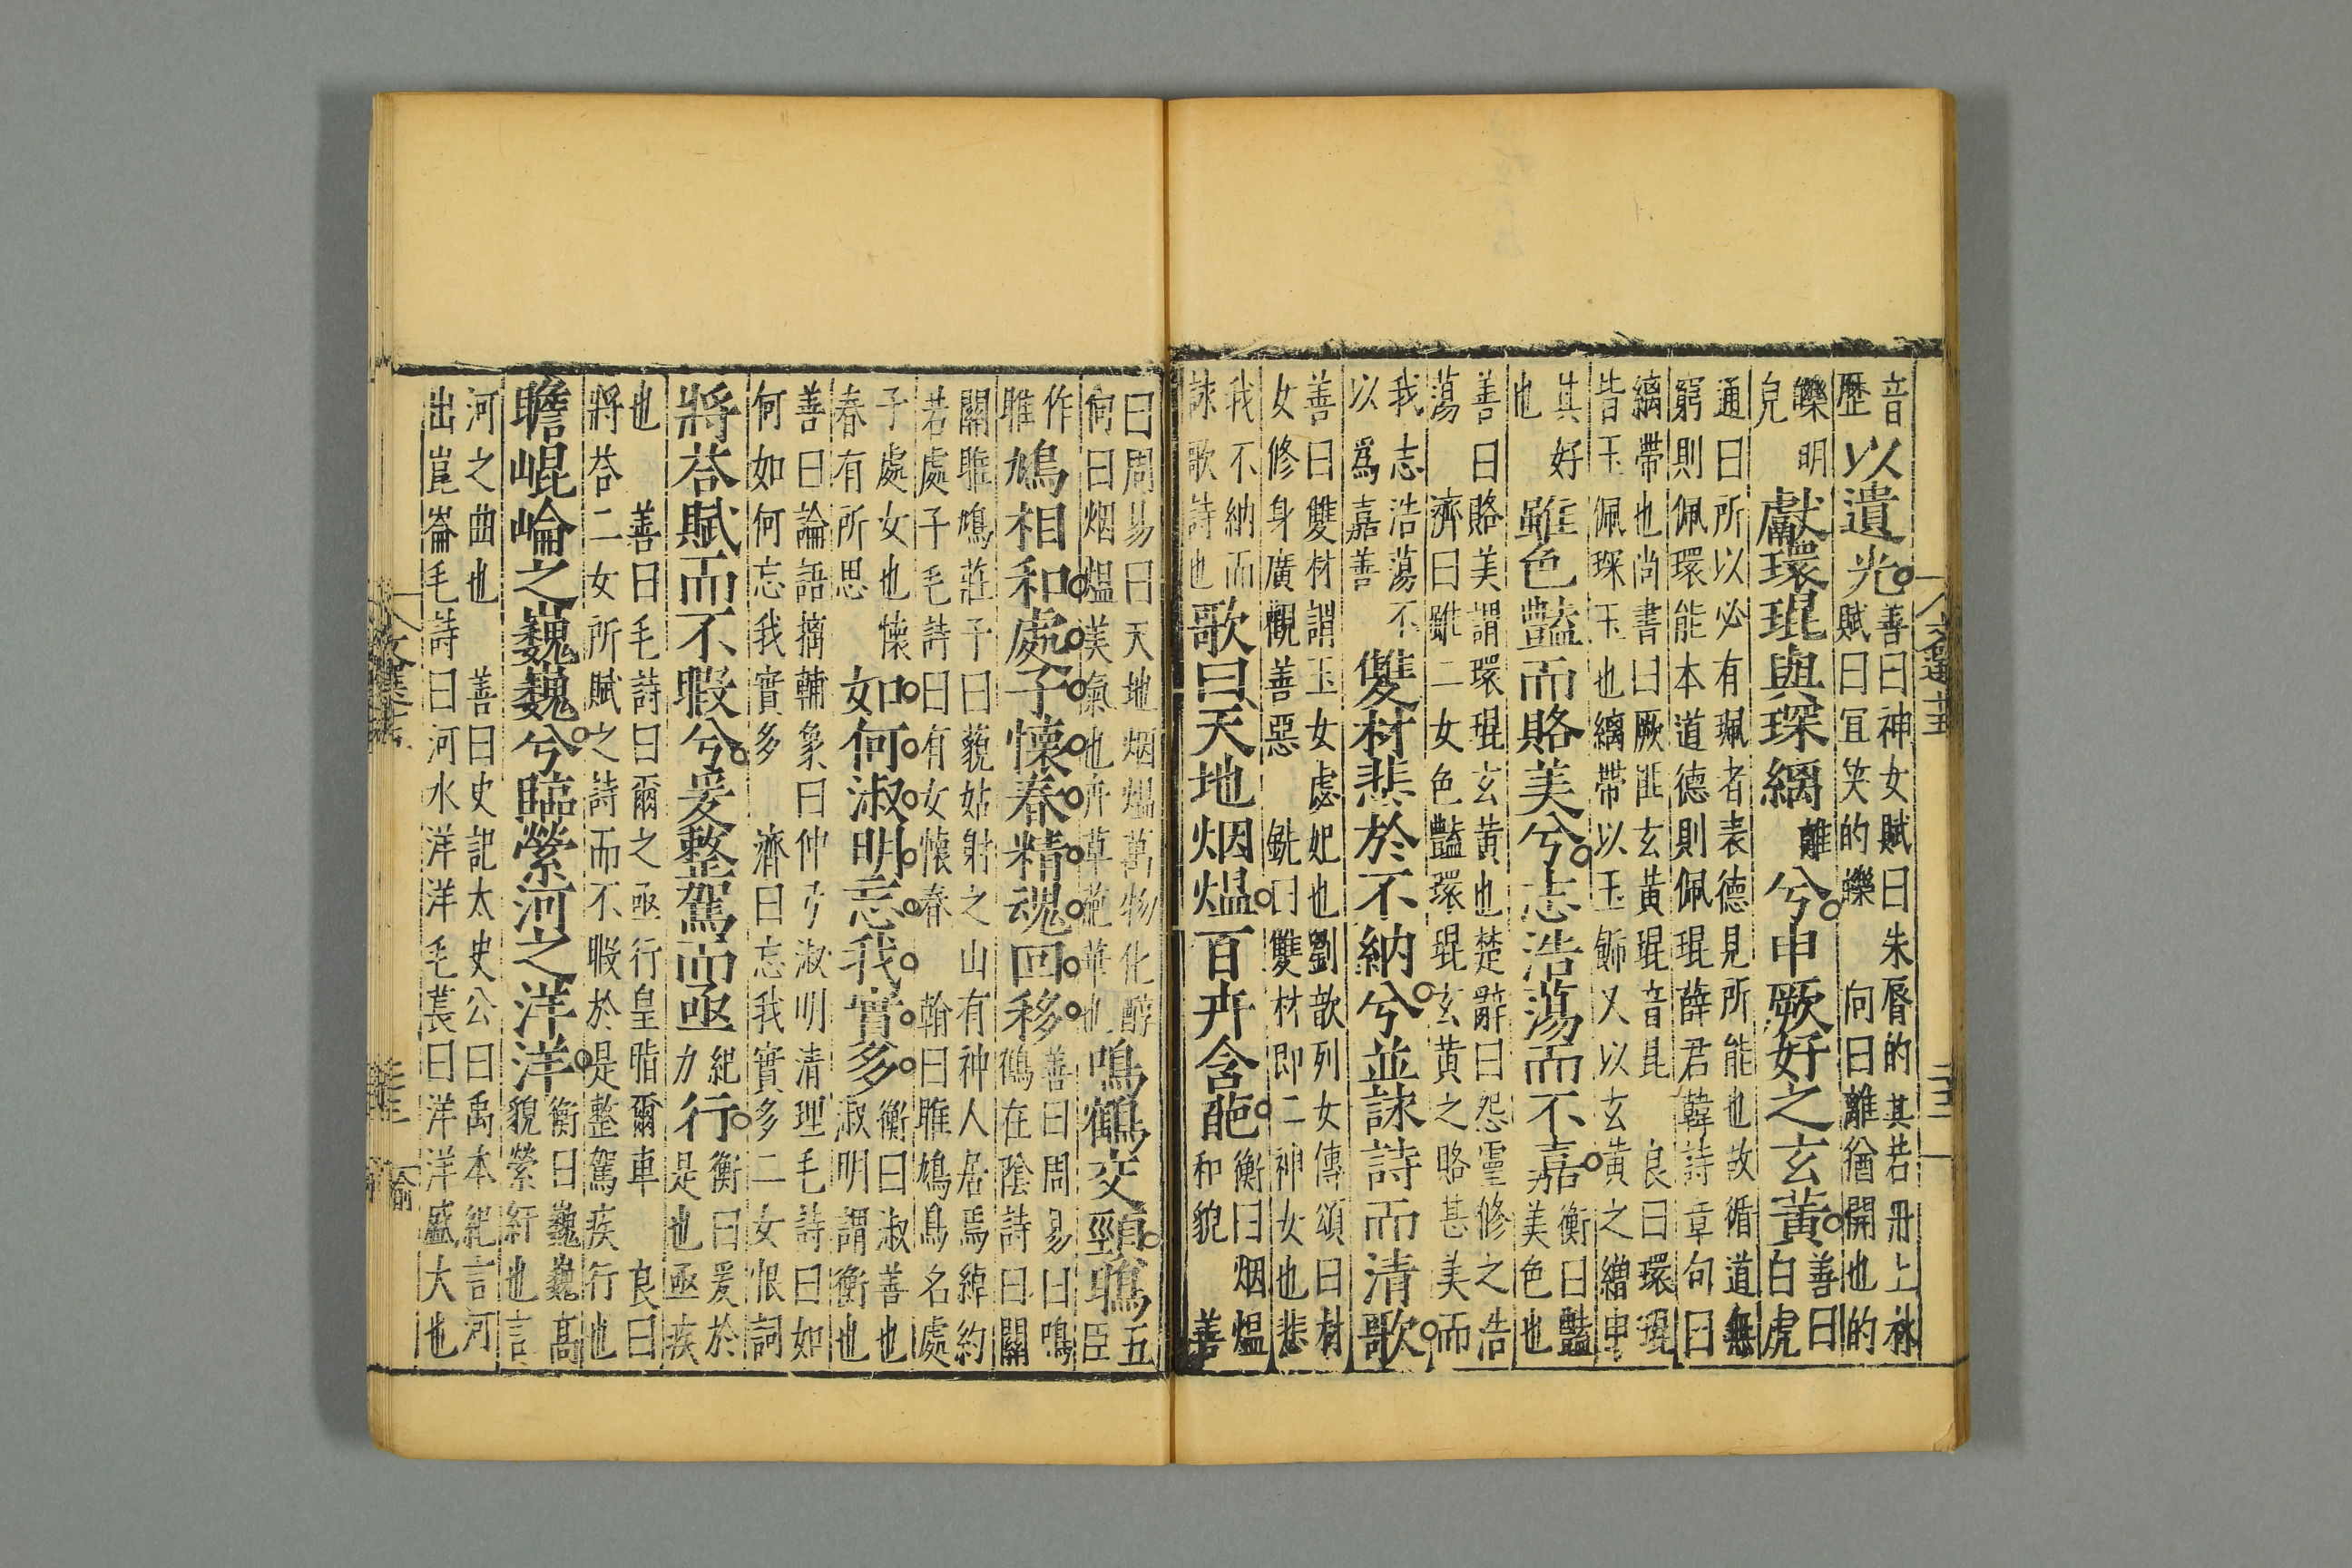 音歷以遺光善曰神女賦曰朱脣的其若丹上林賦曰宜笑的皪 向曰離猶開也的
皪明皃獻環琨與琛縭離兮申厥好之玄黃善曰白虎
通曰所以必有珮者表德見所能也故循道無窮則佩環能本道德則佩琨薛君韓詩章句曰
縭帶也尚書曰厥匪玄黃琨音昆 良曰環琨皆玉佩琛玉也縭帶以玉飾又以玄黃之繒申
其好也雖色豔而賂美兮志浩蕩而不嘉衡曰豔美色也
善曰賂美謂環琨玄黃也楚辭曰怨靈修之浩蕩 濟曰雖二女色豔環琨玄黃之賂甚美而
我志浩蕩不以爲嘉善雙材悲於不納兮並詠詩而清歌
善曰雙材謂玉女處妃也劉歆列女傳頌曰材女修身廣觀善惡 銑曰雙材即二神女也悲
我不納而詠歌詩也歌曰天地烟熅百卉含葩衡曰烟熅和貌 善
曰周易曰天地烟熅萬物化醇向曰烟熅美氣也卉草葩華也鳴鶴交頸鴡五臣
作雎鳩相和處子懷春精魂回移善曰周易曰鳴鶴在陰詩曰關
關雎鳩莊子曰藐姑射之山有神人居焉綽約若處子毛詩曰有女懷春 翰曰雎鳩鳥名處
子處女也懷春有所思如何淑明忘我實多衡曰淑善也淑明謂衡也
善曰論語摘輔象曰仲弓淑明清理毛詩曰如何如何忘我實多 濟曰忘我實多二女恨詞
將荅賦而不暇兮爰整駕而亟紀力行衡曰爰於是也亟疾
也 善曰毛詩曰爾之亟行皇脂爾車 良曰將荅二女所賦之詩而不暇於是整駕疾行也
瞻崐崘之巍巍兮臨縈河之洋洋衡曰巍巍高貌縈紆也言
河之曲也 善曰史記太史公曰禹本紀言河出崑崙毛詩曰河水洋洋毛萇曰洋洋盛大也